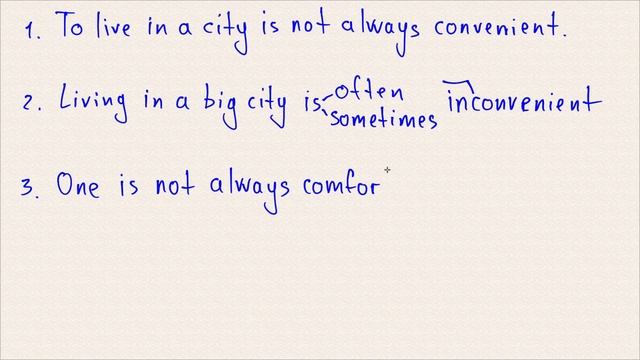 1. To live in a city is not always convenient.
2. Living in a big city is often sometimes inconvenient
3. One is not always comfor